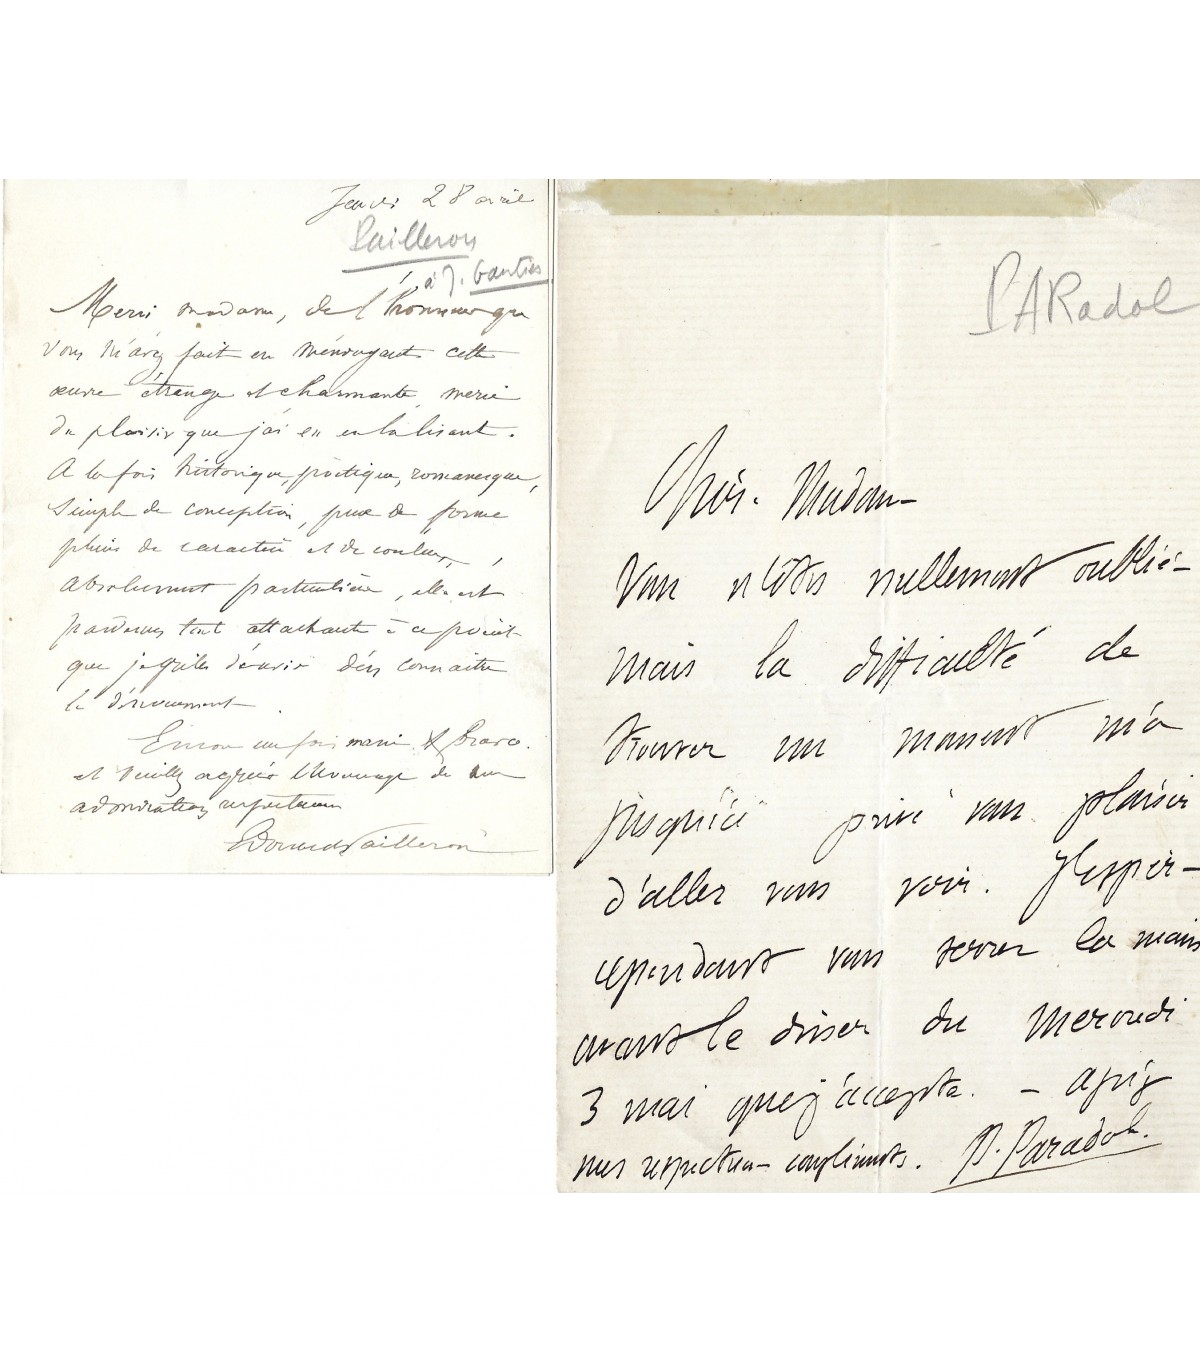 Jeudi 28 avril
Pailleron
à J. Gautier
Merci madame, de l'honneur que
vous m'avez fait en m'envoyant cette
œuvre étrange et charmante, merci
du plaisir que j'ai eu en la lisant.
A la fois historique, poétique, romanesque,
simple de conception, pure de forme
pleine de caractère et de couleur,
absolument particulière, elle est
pardessus tout attachante à ce point
que je grille d'envie d'en connaitre
le dénouement.
Encore une fois merci & bravo.
et veuillez agréer l'hommage de mon
admiration respectueuse
Edouard Pailleron
PARadol
Chère Madame
Vous n'êtes nullement oubliée
mais la difficulté de
trouver un moment m'a
jusqu'ici privé du plaisir
d'aller vous voir. J'espère
cependant vous serrer la main
avant le diner du mercredi
3 mai que j'accepte. – agréez
mes respectueux compliments. P. Paradol.